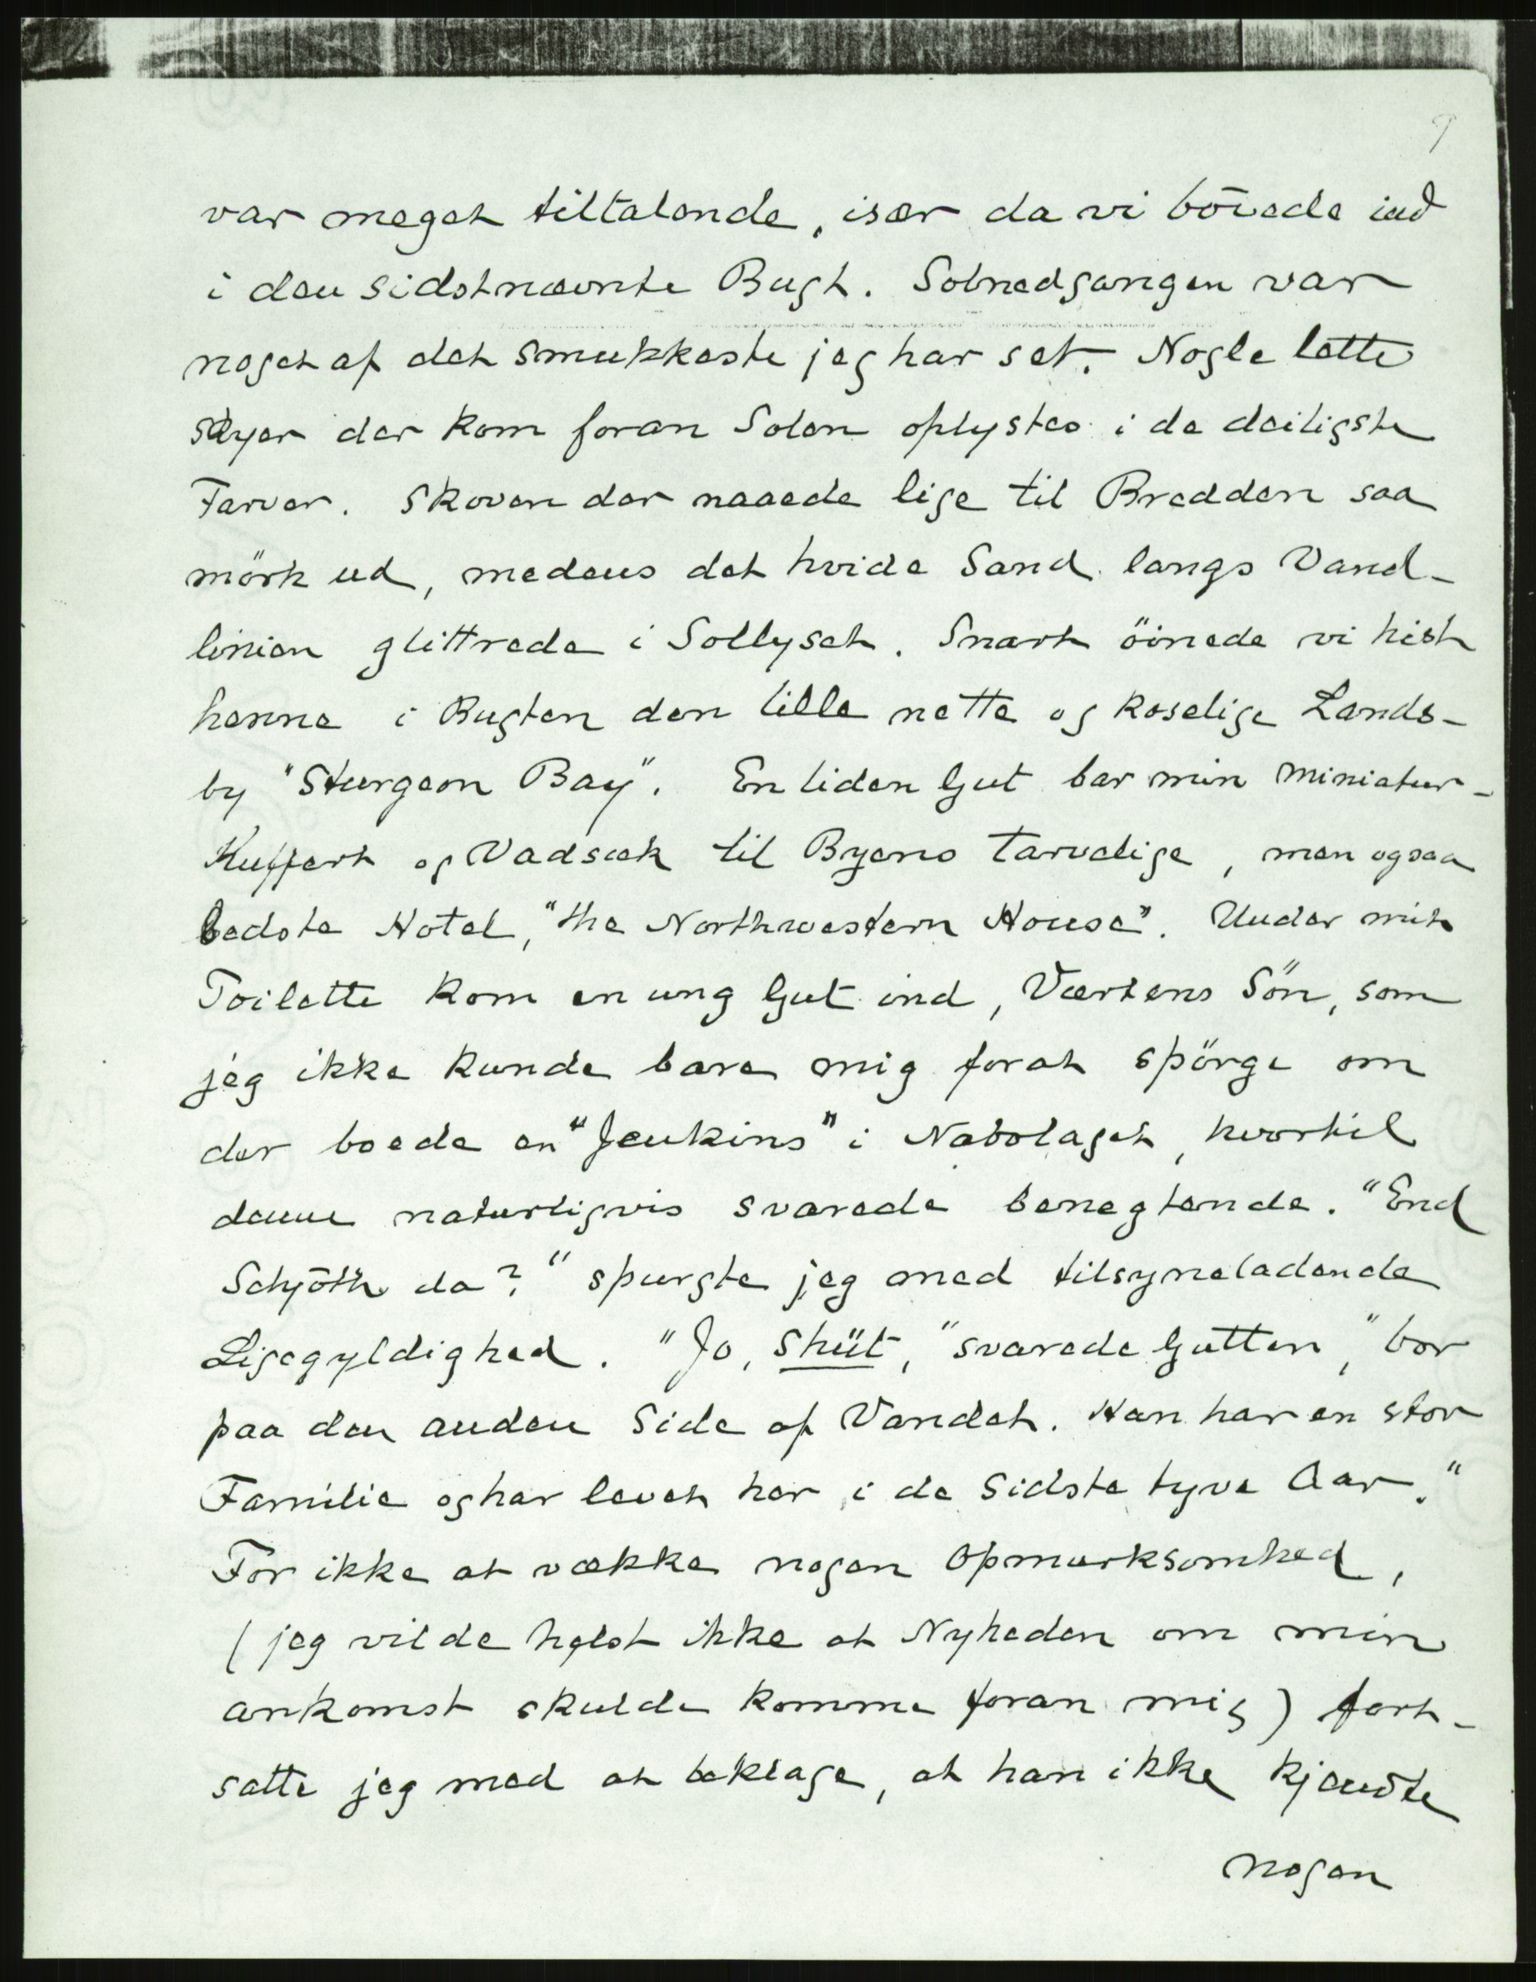 9
var meget tiltalende, især da vi böiede ind
i den sidstnævnte Bugt. Solnedgangen var
noget af det smukkeste jeg har set. Nogle lette
Skyer der kom foran Solen oplystes i de deiligste
Farver. Skoven der naaede lige til Bredden saa
mörk ud, medens det hvide Sand langs Vand-
linien glittrede i Sollyset. Snart öinede vi hist
henne i Bugten den lille nette og koselige Lands-
by "Sturgeon Bay". En liden Gut bar min Miniatur-
Kuffert og Vadsæk til Byens tarvelige, men ogsaa
bedste Hotel, "the Northwestern House". Under mit
Toilette kom en ung Gut ind, Værtens Sön, som
jeg ikke kunde bare mig forat spörge om
der boede en "Jenkins" i Nabolaget, hvortil
denne naturligvis svarede benegtende. "End
Schjöth da?" spurgte jeg med tilsyneladende
Ligegyldighed. "Jo, Shüt," svarede Gutten, "bor
paa den anden Side af Vandet. Han har en stor
Familie og har levet her i de sidste tyve Aar."
For ikke at vække nogen Opmærksomhed,
(jeg vilde helst ikke at Nyheden om min
ankomst skulde komme foran mig) fort-
satte jeg med at beklage, at han ikke kjendte
nogen